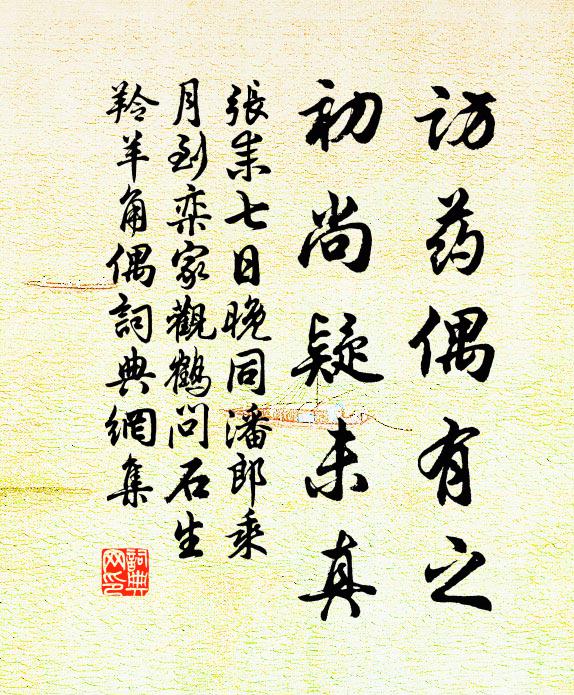 访药偶有之
初尚疑未真
張耒七日晚同潘郎乘
月到栾家觀鶴问石生
羚羊角偶詞典網集
詞典网印